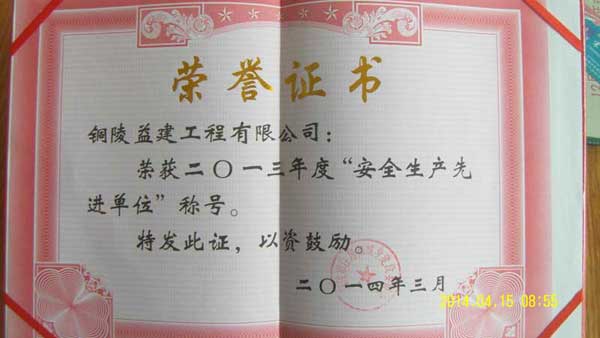 荣誉证书
铜陵益建工程有限公司：
荣获二〇一三年度“安全生产先
进单位”称号。
特发此证，以资鼓励。
二〇一四年三月
2014.04.15 08:55